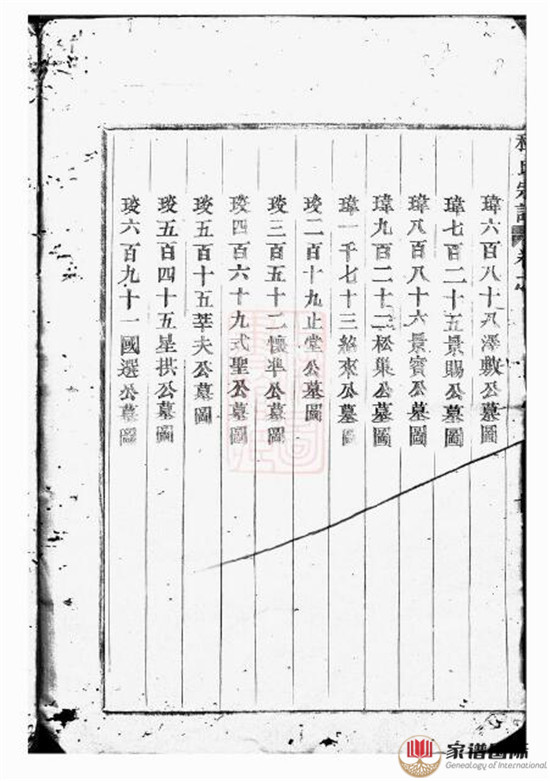 宗譜
瑋六百八十八澤敷公墓圖
瑋七百二十五景賜公墓圖
瑋八百八十六景賓公墓圖
瑋九百二十二松巢公墓圖
瑋一千七十三絡來公墓圖
琰二百十九止堂公墓圖
琰三百五十二懷準公墓圖
琰四百六十九式聖公墓圖
琰五百十五莘夫公墓圖
琰五百四十五星拱公墓圖
琰六百九十一國選公墓圖
家谱国际
Genealogy of International